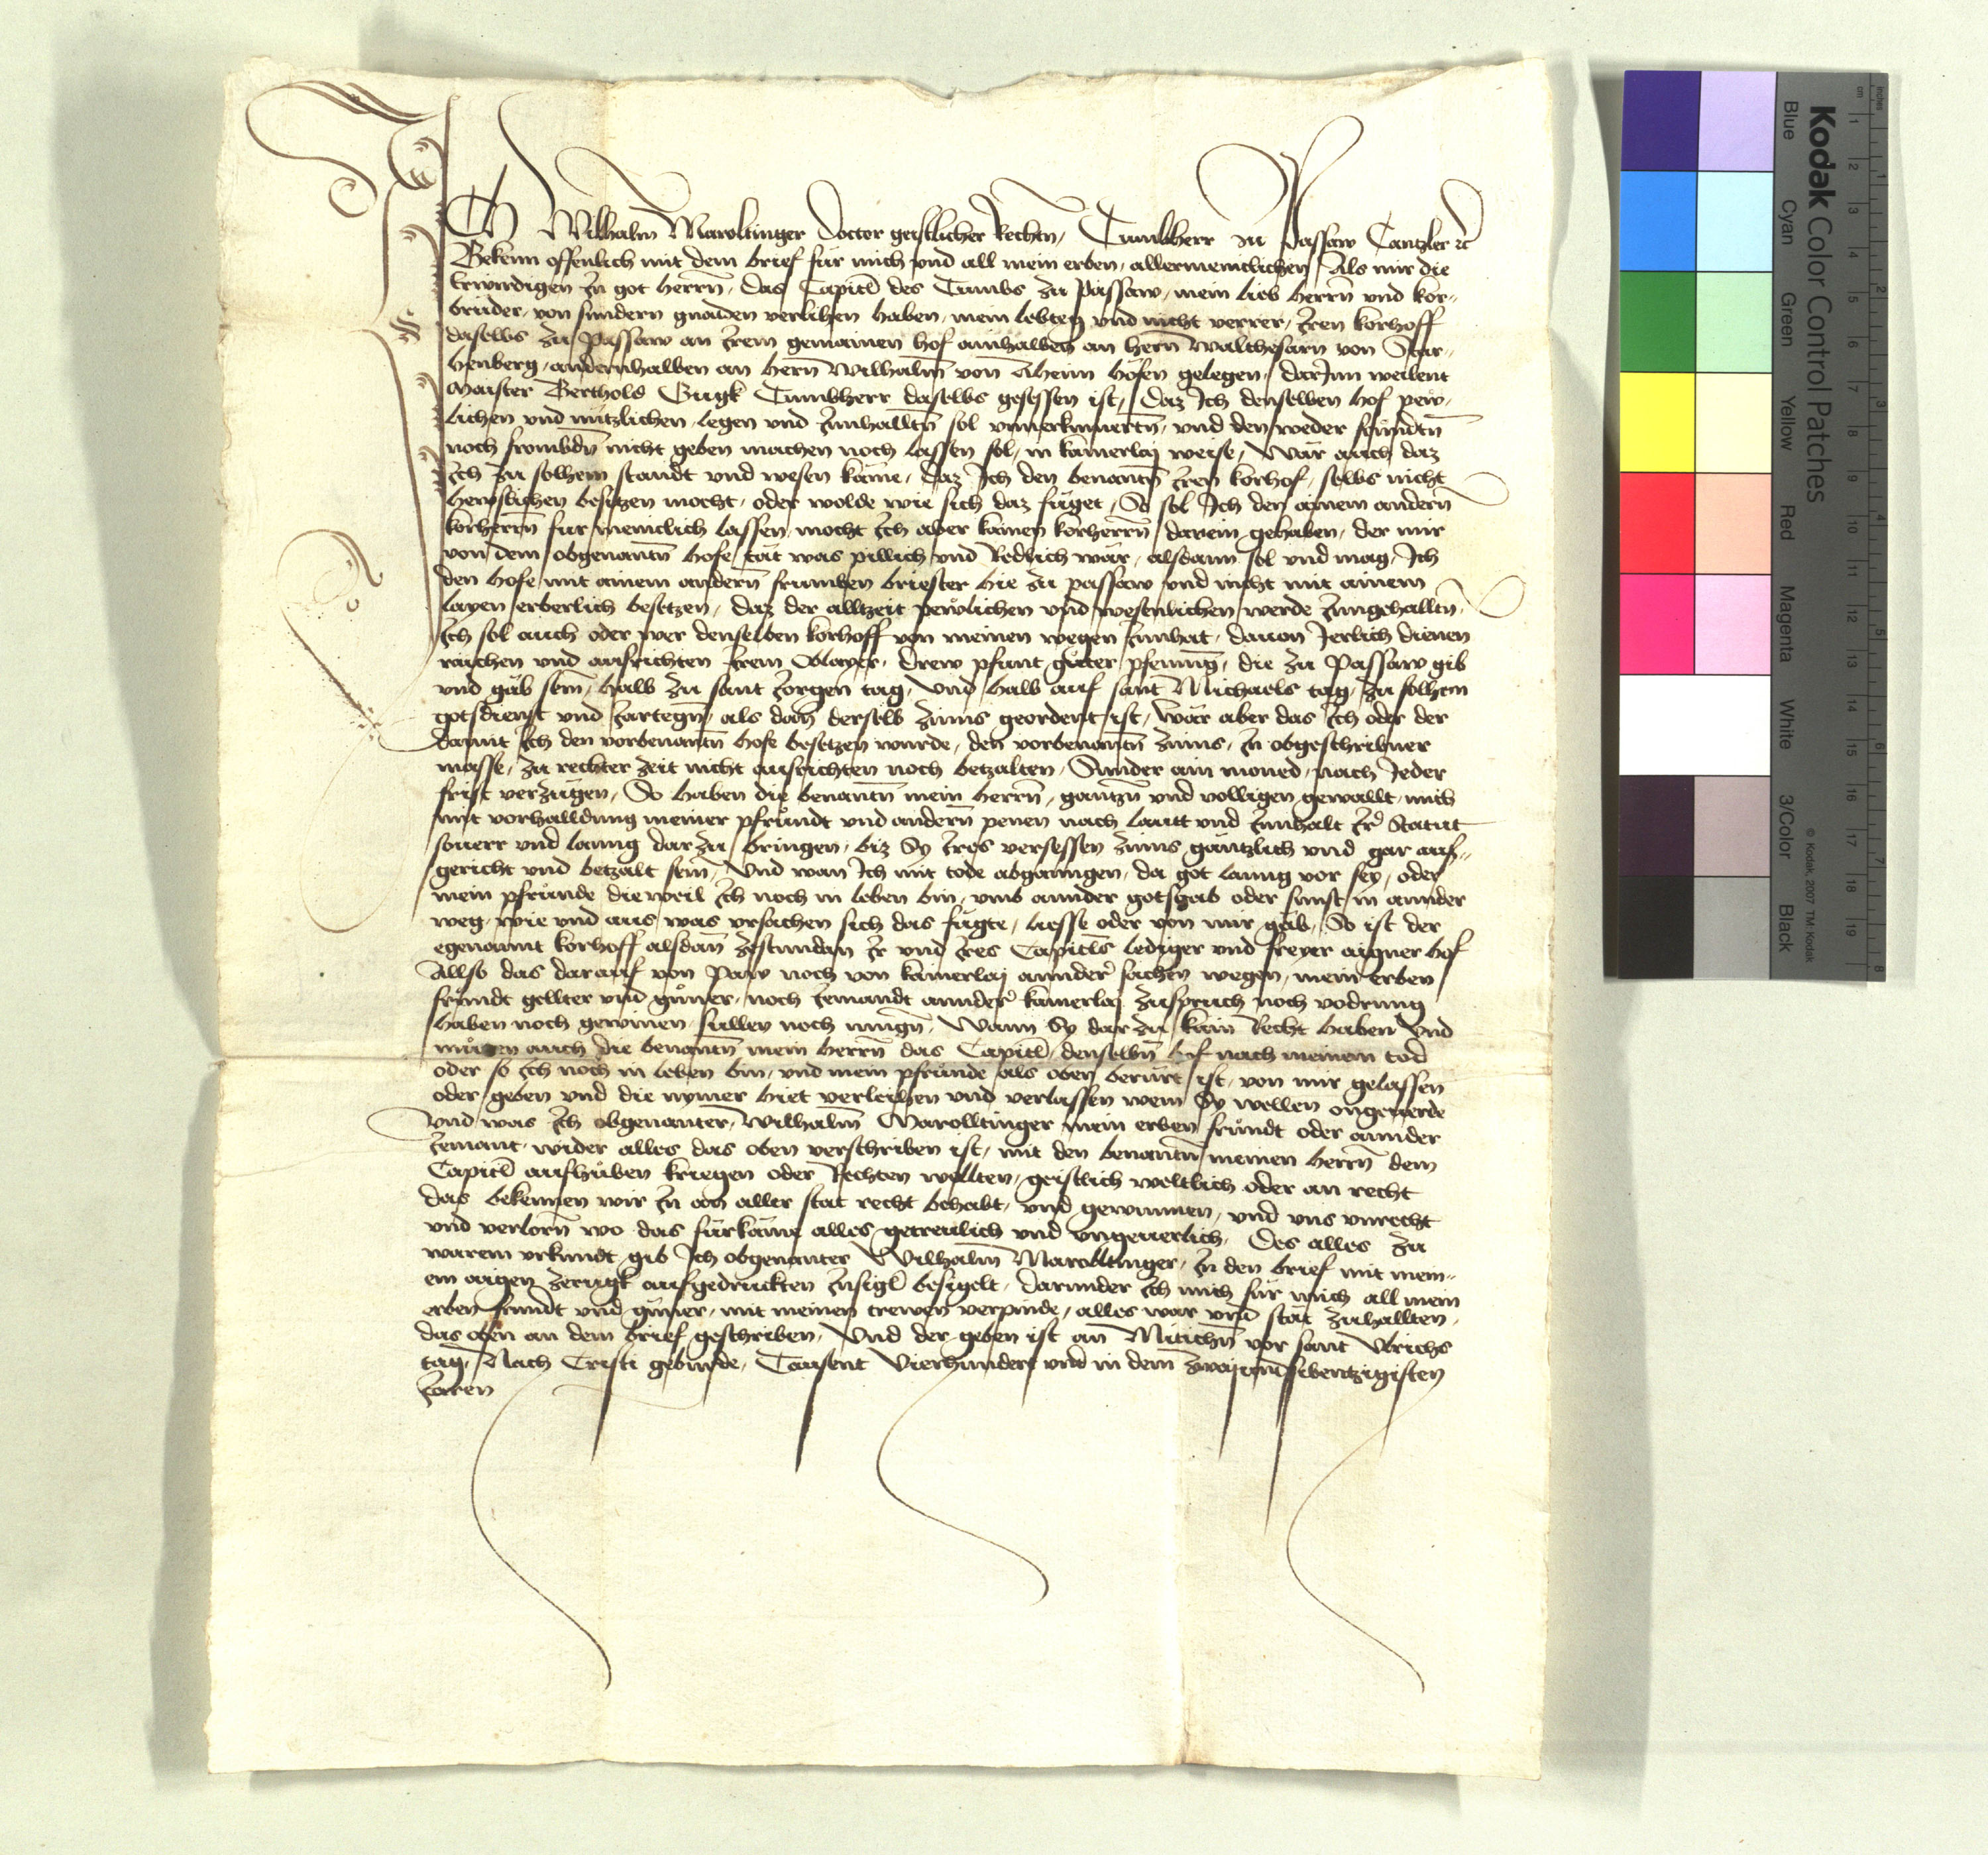 Ich Wilhalm Maroltinger doctor geistlicher Rechtn, Tumbherr zu Passaw Cantzler etc
Bekenn offenlich mit dem brief fur mich vnd all mein erben, allermeniclichen, Als mir die
Erwirdigen In got herrn, das Capitl des Tumbs zu Passaw, mein lieb herrn vnd kor-
bruder, von sundern gnaden verlihen haben, mein lebteg vnd nicht verrer, Iren korhoff
daselbs zu Passaw an Irem gemainen hof ainhalben an hern Walthesarn von Star-
henberg, anndernhalben an hern Wilhalm von Aheim höfen gelegen, darInn weilent
Maister Berthold Tumbherr daselbs gesessen ist, Daz Ich denselben hof pew-
lichen vnd nutzlichen, legen vnd Innhalltn sol vnuerkumertn, vnd den weder freundtn
noch frombdn nicht geben machen noch lassen sol, in kainerlaj weise, Wär auch daz
Ich zu solhem standt vnd wesen käme, daz Ich den benantn Iren korhof, selbs nicht
hewslichen besitzen mocht, oder wolde wie sich daz fuget, So sol Ich den ainem andern
korherrn fur meniclich lassen, mocht Ich aber kainen korherrn darein gehaben, der mir
von dem obgenantn hofe tät was pillich vnd Redlich wär, alsdann sol vnd mag Ich
den hofe mit ainem andern frumben briester hie zu passaw vnd nicht mit ainem
layen erberlich besetzen, daz der alltzeit pewlichen vnd wesenlichen werde Inngehalltn,
Ich sol auch oder wer denselben korhoff von meinen wegen Innhat, dauon Jerlich dienen
raichen vnd ausrichten Irem Oblayer, drew pfunt guter pfening, die zu Passaw gib
vnd gäb sein, halb zu sant Jorgen tag, vnd halb auf sant Michaels tag, zu solhem
gotsdienst vnd Jartegn, als dan derselb zinns geordent ist, Wär aber das Ich oder der
damit Ich den vorbenantn hofe besetzen wurde, den vorbenantn zinns, In obgeschribner
masse, zu rechter zeit nicht ausrichten noch betzalten, Sunder ain moned, nach Jeder
frist verzugen, So haben die benantn mein herrn, gantzn vnd volligen gewallt, mich
mit vorhalldung meiner pfrundt vnd andern penen nach lautt vnd Innhalt Irer Statut
souerr vnd lanng dar zu bringen, biz Sy Ires versessen zinns gäntzlich vnd gar aus-
gericht vnd betzalt sein, Vnd wan Ich mit tode abganngen, da got lanng vor sey, oder
mein pfrunde dieweil Ich noch in leben bin, vmb annder gotsgab oder sunst in annder
weg, wie vnd aus was vrsachen sich das fugte, liesse oder von mir gäb, So ist der
egenannt korhoff alsdan zestundan Ir vnd Ires Capitels lediger vnd freyer aigner hof
Allso das darauf von Paw noch von kainerlaj annder sachen wegen, mein erben
frundt gellter vnd guner, noch Iemandt annder kainerlaj zuspruch noch vodrung
haben noch gewinen sullen noch mugn, Wann Sy dar zu kain Recht haben Vnd
mugen auch die benantn mein herrn das Capitl, denselbn hof nach meinem tod
oder so Ich noch in leben bin, vnd mein pfrunde als oben berurt ist, von mir gelassen
oder geben vnd die nymer hiet verleihen vnd verlassen wem Sy wellen ongeuerde
Vnd was Ich obgenanter, Wilhalm Marolltinger mein erben frundt oder annder
Iemant, wider alles das oben verschriben ist, mit den benantn meinen herrn dem
Capitl aufhuben kriegen oder Rechten wollten, geistlich weltlich oder an recht
das bekennen wir In an aller stat recht behabt, vnd gewunnen, vnd vns vnrecht
vnd verlorn wo das furkäme alles getreulich vnd vngeuerlich. Des alles zu
warem vrkundt gib Ich obgenanter Wilhalm Marolltinger, In den brief mit mein-
em aigen zerugk aufgedruckten Insigl besigelt, darunder Ich mich fur mich all mein
erben frundt vnd guner, mit meinen trewen verpinde, alles war vnd stät zuhallten,
das oben an dem brief geschriben, Vnd der geben ist an Mitichn vor sant Vlrichs
tag, Nach Cristi geburde, Tausent Vierhundert vnd in dem zwaijvndsibentzigisten
Jaren
Kodak Color Control Patches
Blue Cyan Green Yellow Red Magenta White 3/Color Black
© Kodak, 2007 TM: Kodak
inches 1 2 3 4 5 6 7 8
cm 1 2 3 4 5 6 7 8 9 10 11 12 13 14 15 16 17 18 19